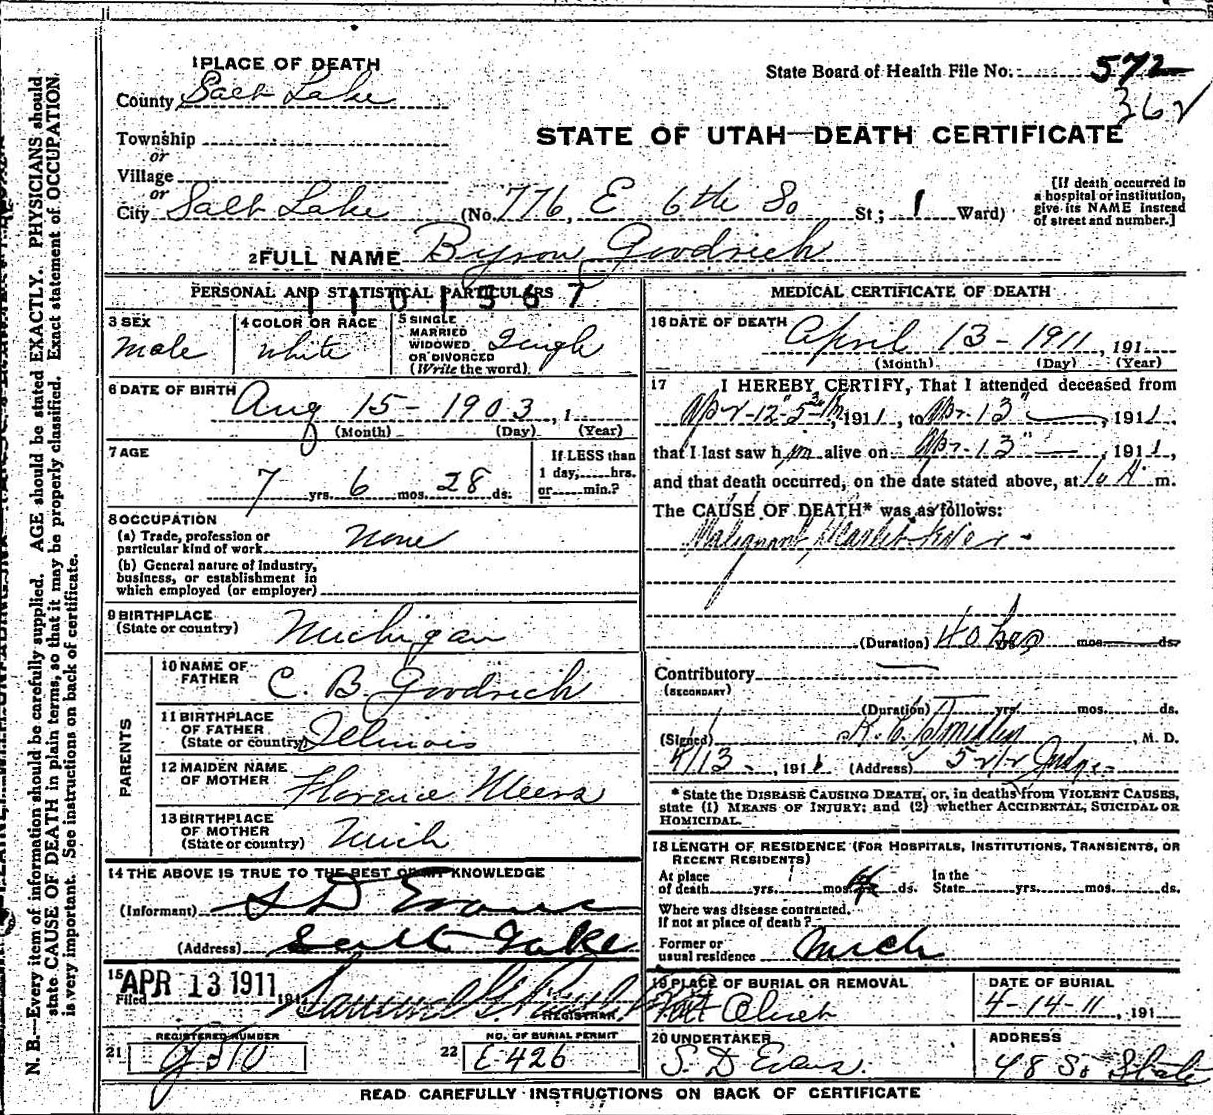 1 PLACE OF DEATH
County Salt Lake
Township
or
Village
or
City Salt Lake (No. 776, E 6th So St; 1 Ward)
State Board of Health File No. 572
362
STATE OF UTAH—DEATH CERTIFICATE
[If death occurred in
a hospital or institution,
give its NAME instead
of street and number.]
2 FULL NAME Byron Goodrich
PERSONAL AND STATISTICAL PARTICULARS
1101567
3 SEX
Male
4 COLOR OR RACE
White
5 SINGLE
MARRIED
WIDOWED
OR DIVORCED
(Write the word)
Single
6 DATE OF BIRTH
Aug 15 - 1903, 1
(Month) (Day) (Year)
7 AGE
7 yrs. 6 mos. 28 ds.
If LESS than
1 day, hrs.
or min.?
8 OCCUPATION
(a) Trade, profession or
particular kind of work None
(b) General nature of industry,
business, or establishment in
which employed (or employer)
9 BIRTHPLACE
(State or country) Michigan
PARENTS
10 NAME OF
FATHER C. B. Goodrich
11 BIRTHPLACE
OF FATHER
(State or country) Illinois
12 MAIDEN NAME
OF MOTHER Florence
13 BIRTHPLACE
OF MOTHER
(State or country) Mich
14 THE ABOVE IS TRUE TO THE BEST OF MY KNOWLEDGE
(Informant) S D Evans
(Address) Salt Lake
15
Filed APR 13 1911 191
REGISTRAR
REGISTERED NUMBER
21
NO. OF BURIAL PERMIT
22 E 426
MEDICAL CERTIFICATE OF DEATH
16 DATE OF DEATH
April 13 - 1911, 191
(Month) (Day) (Year)
17 I HEREBY CERTIFY, That I attended deceased from
Apr - 12" , 1911, to Apr - 13", 1911,
that I last saw him alive on Apr - 13", 1911,
and that death occurred, on the date stated above, at 10 A m.
The CAUSE OF DEATH* was as follows:
Malignant Scarlet Fever -
(Duration) 40 hrs yrs. mos. ds.
Contributory
(SECONDARY)
(Duration) yrs. mos. ds.
(Signed) M. D.
4/13, 1911 (Address) Judge
* State the DISEASE CAUSING DEATH, or, in deaths from VIOLENT CAUSES,
state (1) MEANS OF INJURY; and (2) whether ACCIDENTAL, SUICIDAL OR
HOMICIDAL.
18 LENGTH OF RESIDENCE (FOR HOSPITALS, INSTITUTIONS, TRANSIENTS, OR
RECENT RESIDENTS)
At place In the
of death yrs. mos. ds. State yrs. mos. ds.
Where was disease contracted,
If not at place of death?
Former or
usual residence Mich
19 PLACE OF BURIAL OR REMOVAL
Mt Olivet
DATE OF BURIAL
4-14-11, 191
20 UNDERTAKER
S. D Evans.
ADDRESS
48 So State
READ CAREFULLY INSTRUCTIONS ON BACK OF CERTIFICATE
N. B.—Every item of information should be carefully supplied. AGE should be stated EXACTLY. PHYSICIANS should
state CAUSE OF DEATH in plain terms, so that it may be properly classified. Exact statement of OCCUPATION
is very important. See instructions on back of certificate.